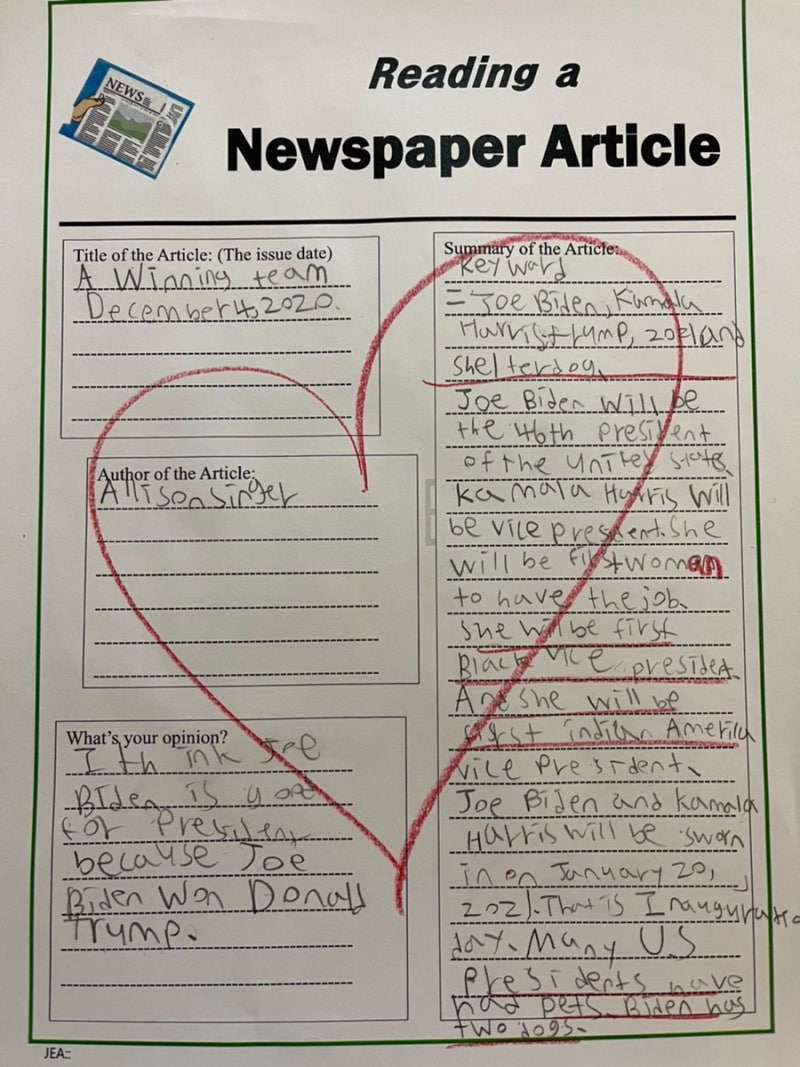 NEWS
Reading a
Newspaper Article
Title of the Article: (The issue date)
A Winning team
December 4, 2020.
Author of the Article:
Allison Singer
What's your opinion?
I think Joe
Biden is good
for President
because Joe
Biden Won Donald
Trump.
Summary of the Article:
Key Word
= Joe Biden, Kamala
Harris, trump, 2021 and
shelterdog.
Joe Biden will be
the 46th president
of the United State.
Kamala Harris Will
be vice president. She
will be first woman
to have the job.
She will be first
Black Vice president.
And she will be
first indian America
Vice President.
Joe Biden and Kamala
Harris will be sworn
in on January 20,
2021. That is Inauguratio
day. Many U.S
Presidents have
had pets. Biden has
two dogs.
JEA::